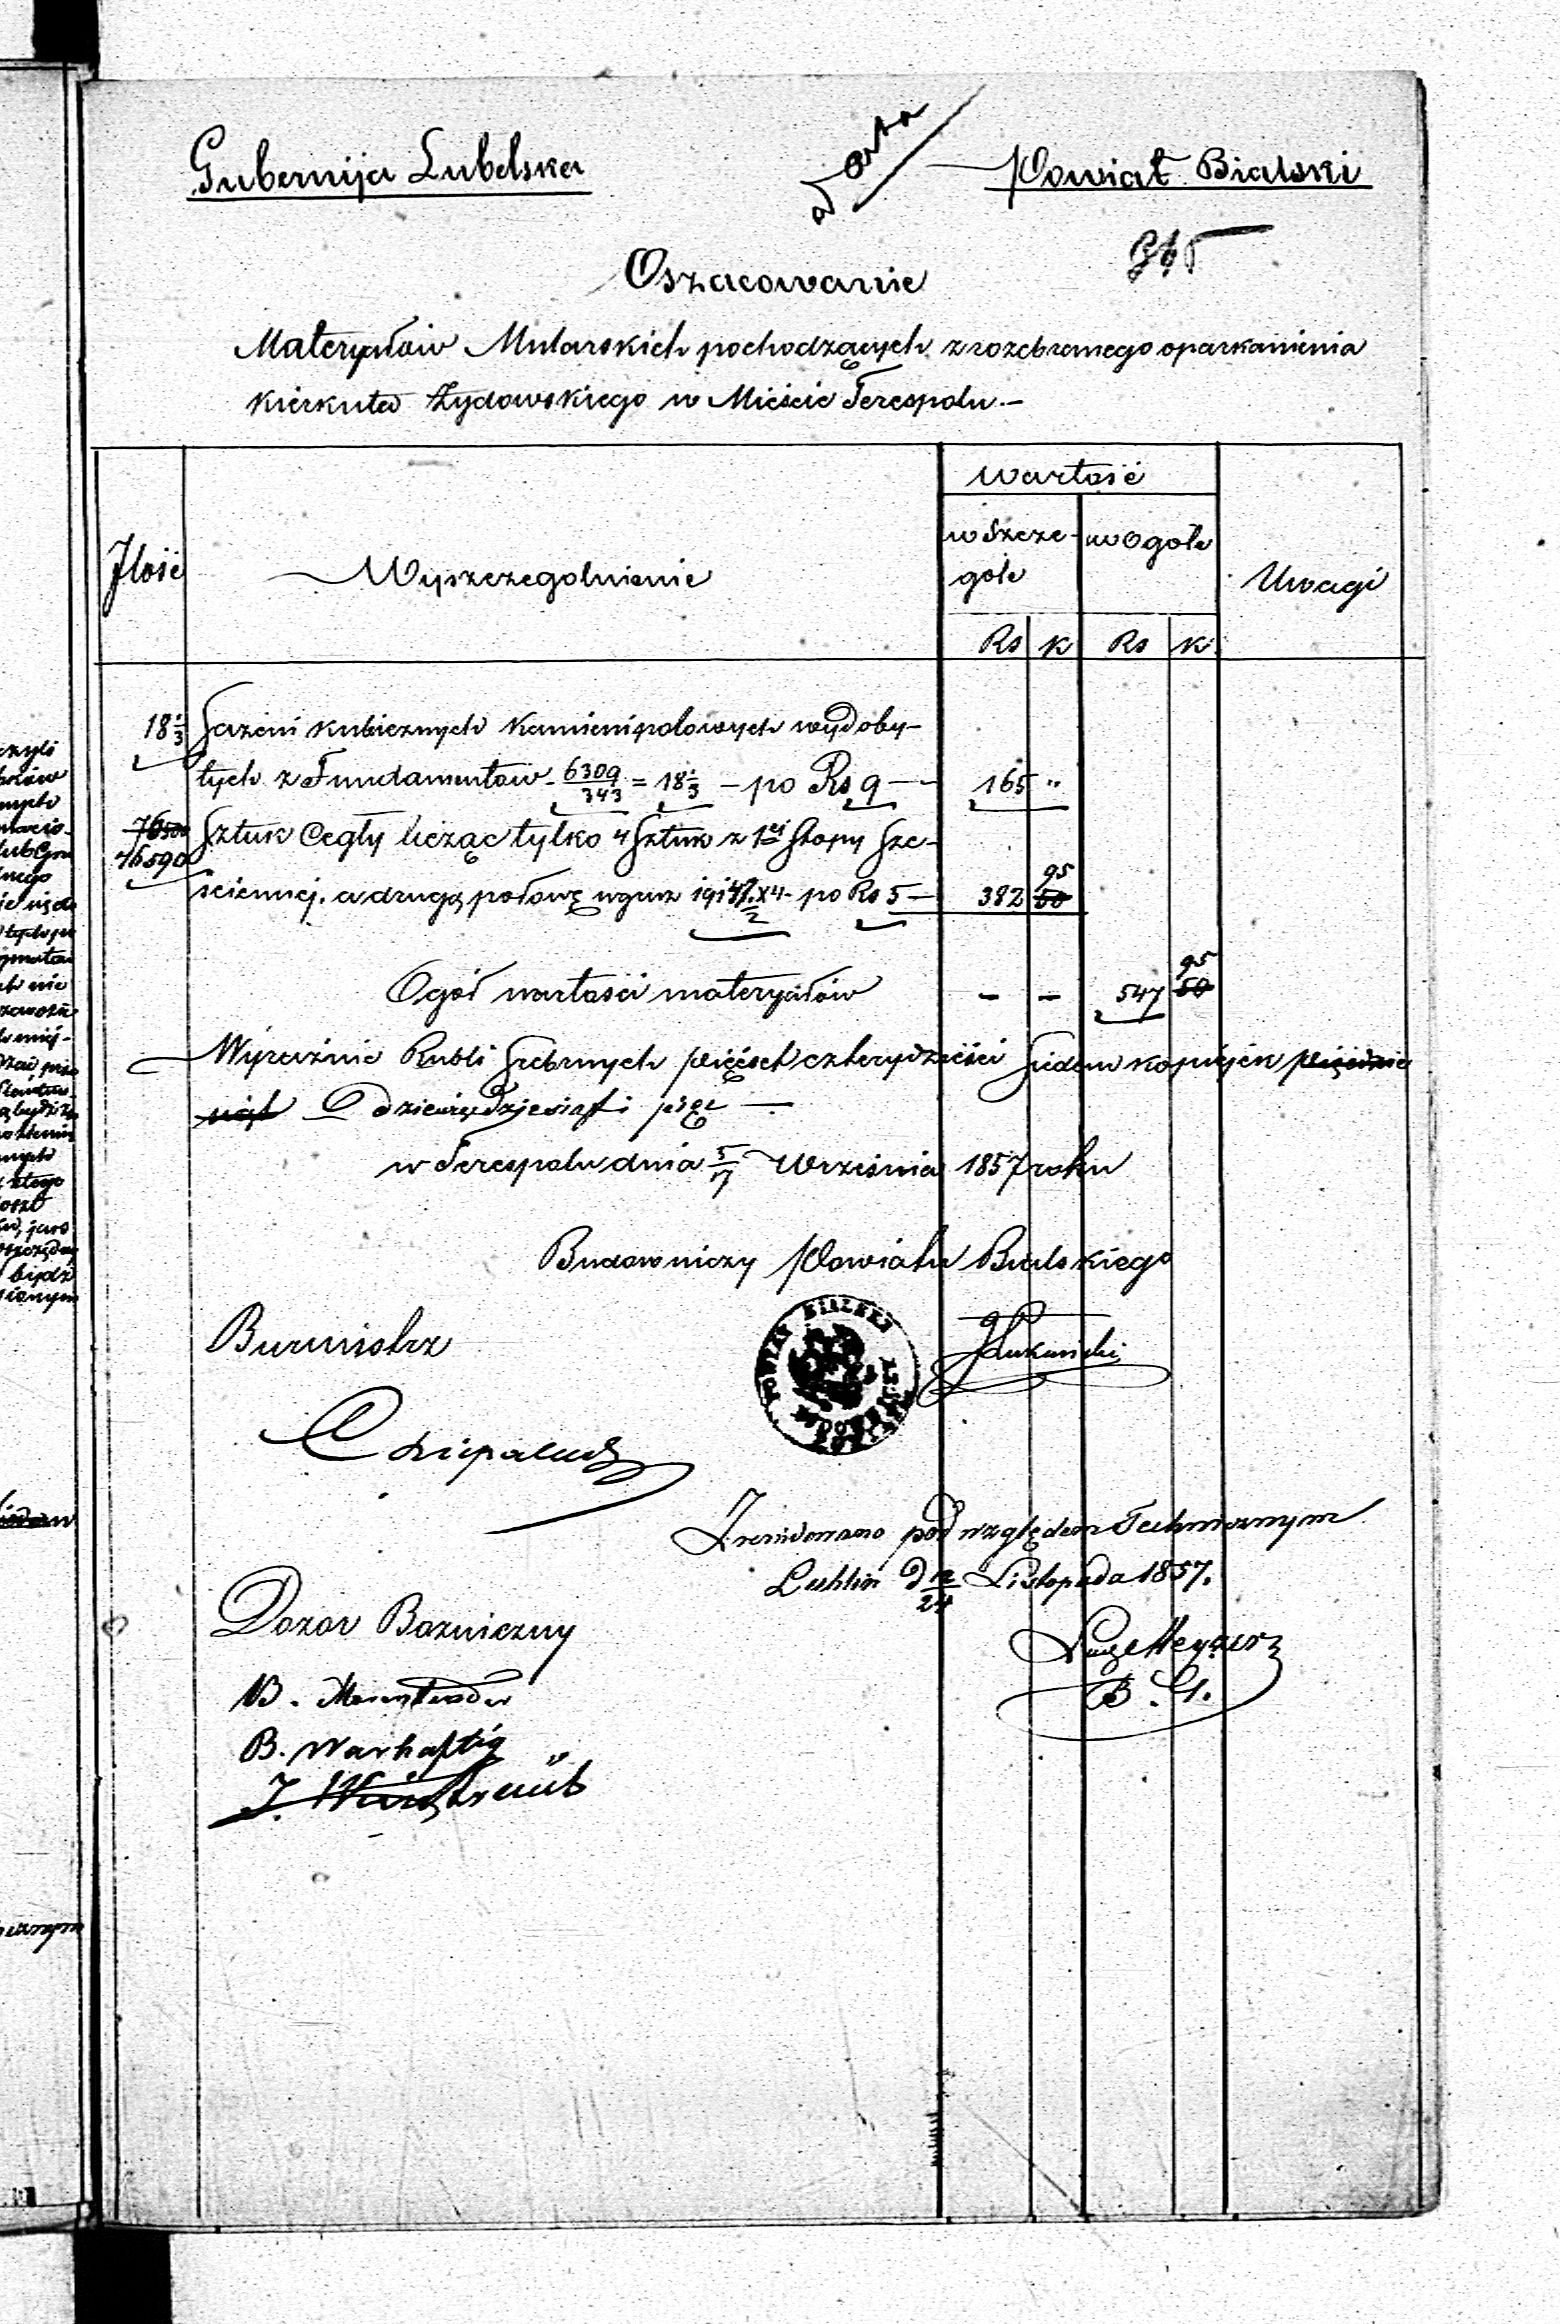 Gubernija Lubelska
Powiat Bialski
Oszacowanie
Materyałów Mularskich pochodzących z rozebranego oparkanienia
Kierkuta Żydowskiego w Mieście Terespolu.-
Ilość
Wyszczegolnienie
Wartość
w Szcze-
gole
w Ogole
Uwagi
Rs K Rs K
18 1/3 Sążni kubicznych kamieni polowych wydoby-
tych z Fundamentów 6309/343 = 18 1/3 - po Rs 9 - 165 "
76500
76590 Sztuk Cegły licząc tylko 4 Sztuk z 1ej Stopy Sze-
ściennej, a drugą połowę w gruz po Rs 5 - 382 50 95
Ogół wartości materyałów - - 547 50 95
Wyraźnie Rubli Srebrnych pięćset czterydzieści Siedem kopiejek pięćdzie
siąt dziewięćdziesiąt i pięć -
w Terespolu dnia 5/17 Września 1857 roku
Budowniczy Powiatu Bialskiego
Burmistrz
Zrewidowano pod względem Technicznym
Lublin d 12/24 Listopada 1857.
Dozor Bozniczny
B. G.
B. Warhaftig